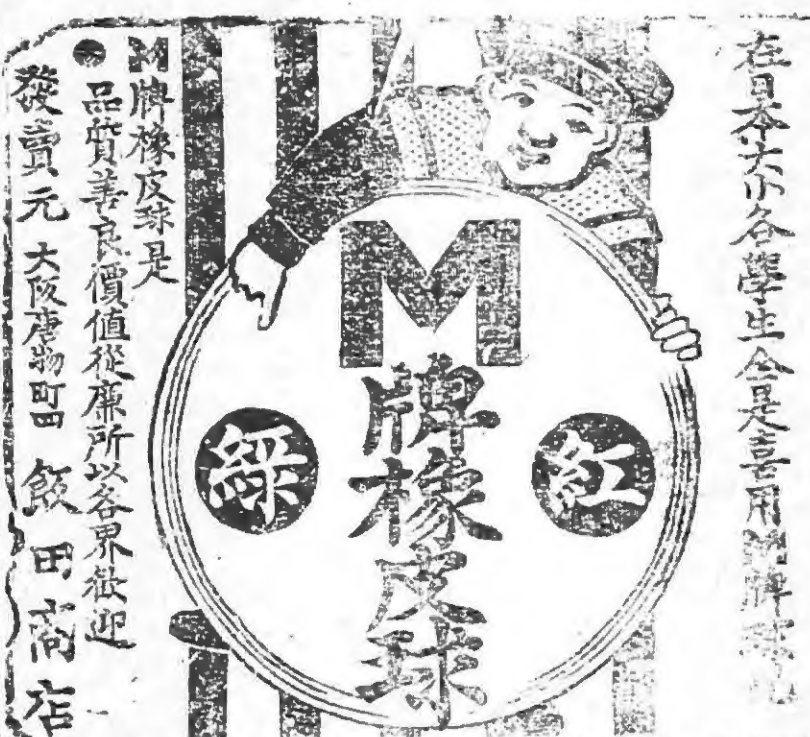 在日本大小各學生全是喜用M牌球
紅
M牌橡皮球
綵
M牌橡皮球是
品質善良價值從廉所以各界歡迎
發賣元 大阪唐物町四 飯田商店